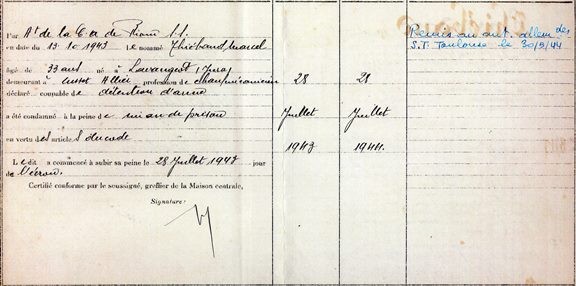 Par At de la C. a de Riom S.S.
en date du 13.10 1943 le nommé Thiébaud Marcel
âgé de 33 ans né à Lavangeot (Jura)
demeurant à Cusset Allier profession de
déclaré coupable de détention d'arme
a été condamné à la peine de un an de prison
en vertu des articles du code
Le dit a commencé à subir sa peine le 28 Juillet 1943 - jour
de
Certifié conforme par le soussigné, greffier de la Maison centrale,
Signature:
28
Juillet
1943
28
Juillet
1944.
Remis au aut. allem des
S.T. Toulouse le 30/5/44